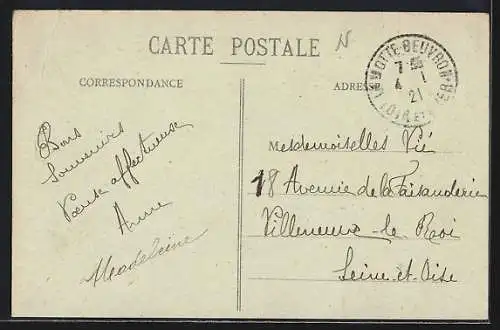 N
CARTE POSTALE
CORRESPONDANCE
ADRESSE
LAMOTTE-BEUVRON
7
4 - 1
21
LOIR-ET-CHER
Bons
Souvenirs
affectueuse
Anne
Madeleine
Mesdemoiselles Vié
18 Avenue de la Faisanderie
Villeneuve-le Roi
Seine-et-Oise